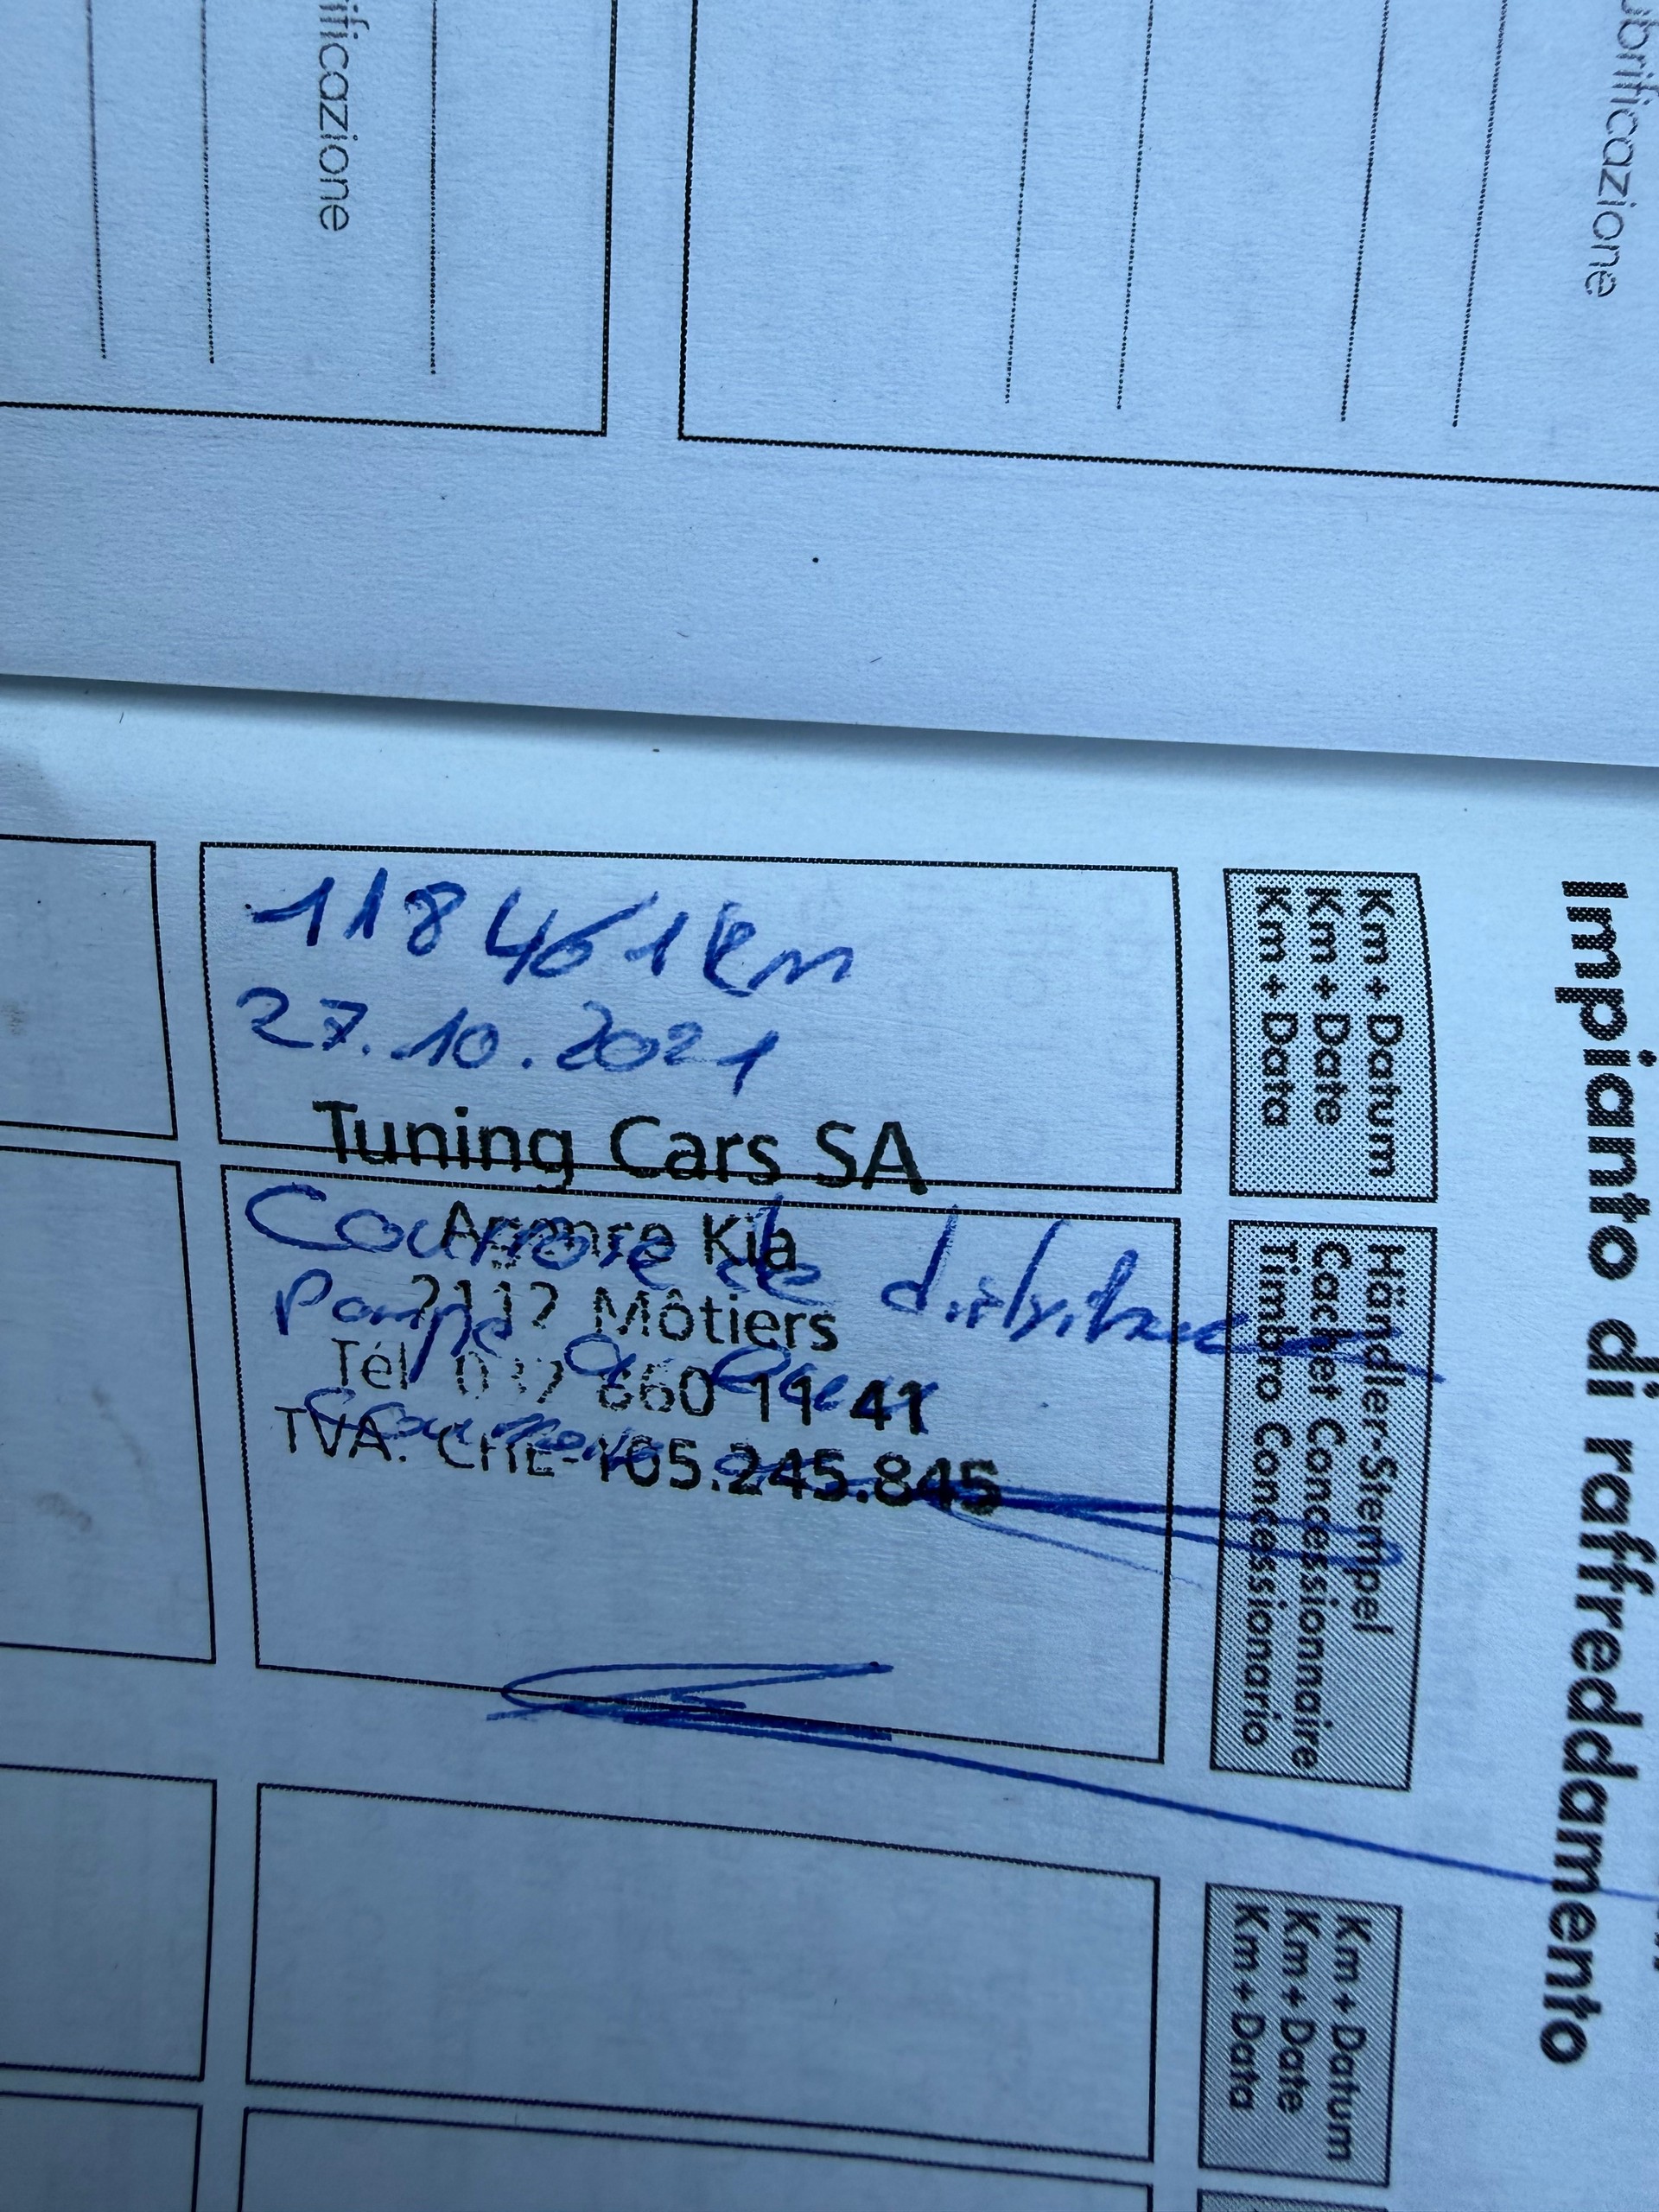 ificazione
ubrificazione
Impianto di raffreddamento
Km + Datum
Km + Date
Km + Data
118461km
27.10.2021
Tuning Cars SA
Agence Kia
2112 Môtiers
Tél. 032 860 11 41
TVA: CHE-105.245.845
Courroie de distribution
Pompe a eau
Courroie
Händler-Stempel
Cachet Concessionnaire
Timbro Concessionario
Km + Datum
Km + Date
Km + Data